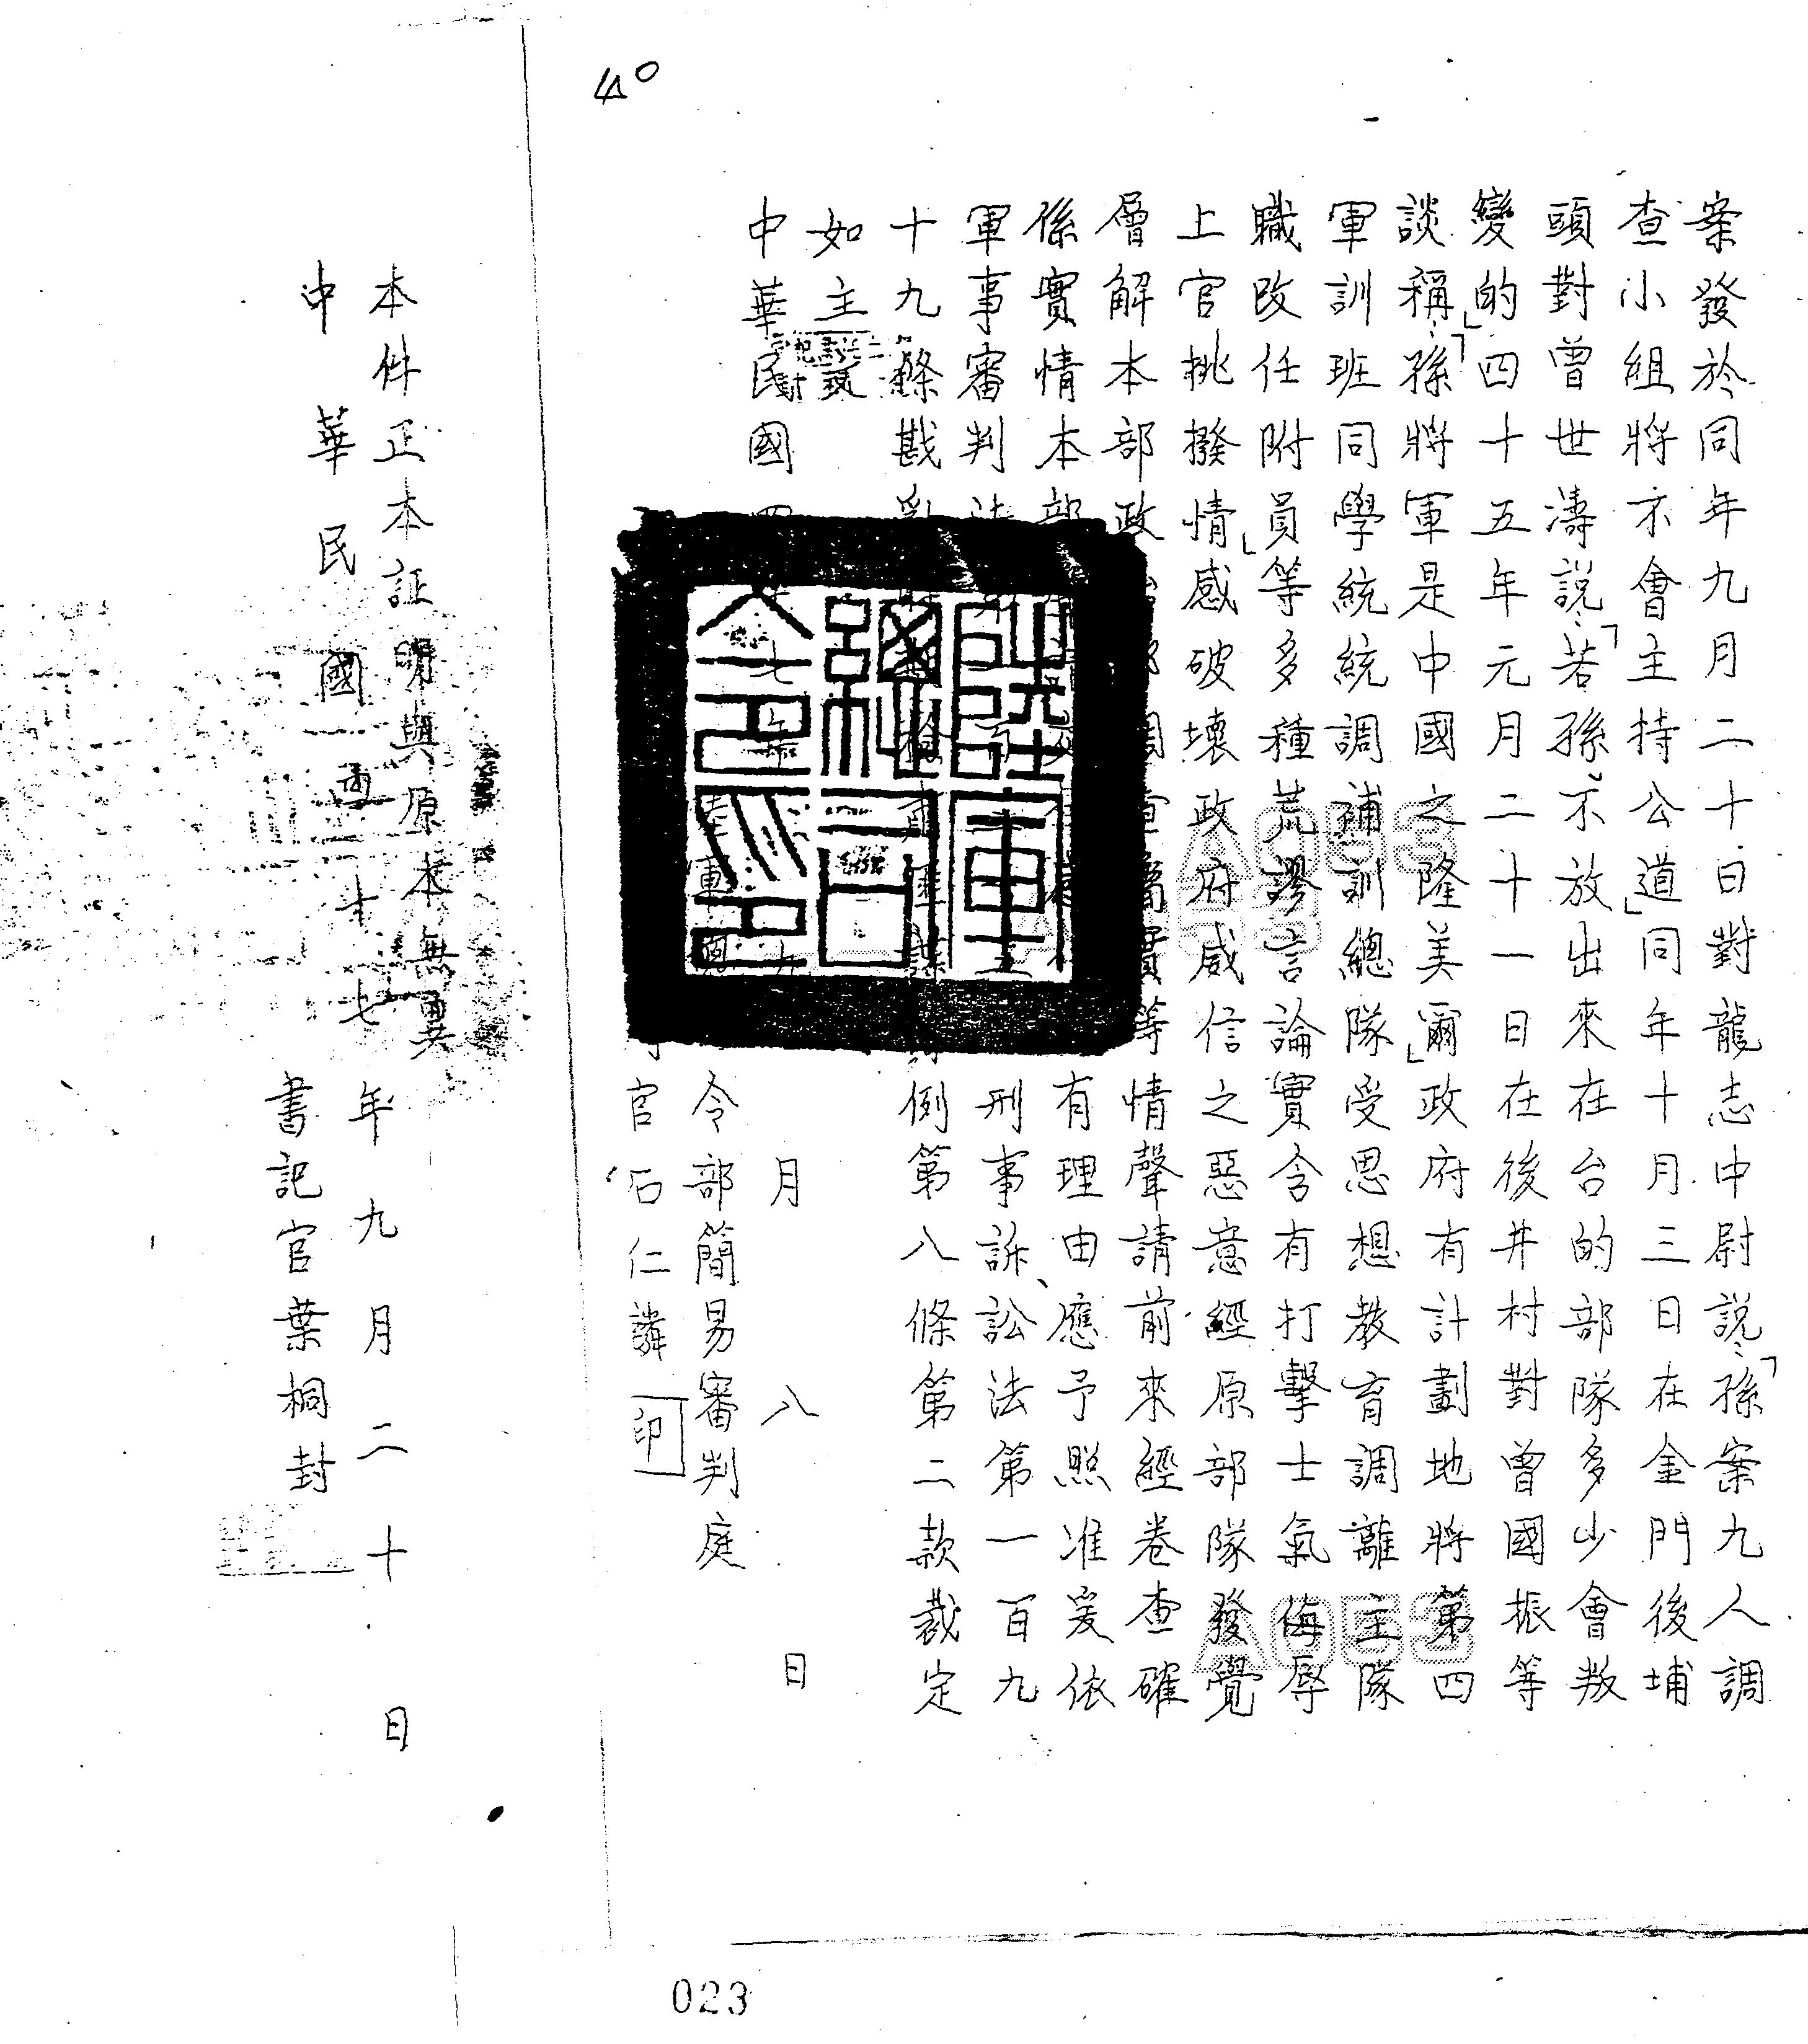 40
案發於同年九月二十日對龍志中尉說:「孫案九人調
查小組將不會主持公道」同年十月三日在金門後埔
頭對曾世濤說:「若孫不放出來在台的部隊多少會叛
變的」四十五年元月二十一日在後井村對曾國振等
談稱:「孫將軍是中國之隆美爾」政府有計劃地將第四
軍訓班同學統統調補訓總隊受思想教育調離主隊
職改任附員等多種荒謬言論實含有打擊士氣侮辱
上官挑撥情感破壞政府威信之惡意經原部隊發覺
層解本部政 等情聲請前來經卷查確
係實情本部 有理由應予照准爰依
軍事審判法 刑事訴訟法第一百九
十九條戡亂 例第八條第二款裁定
如主文
中華民國四 七年九月八日
陸軍 令部簡易審判庭
官石仁譜 印
本件正本証明與原本無異
中華民國四十七年九月二十日
書記官葉桐封
陸軍總司令部印
A053
A053
023